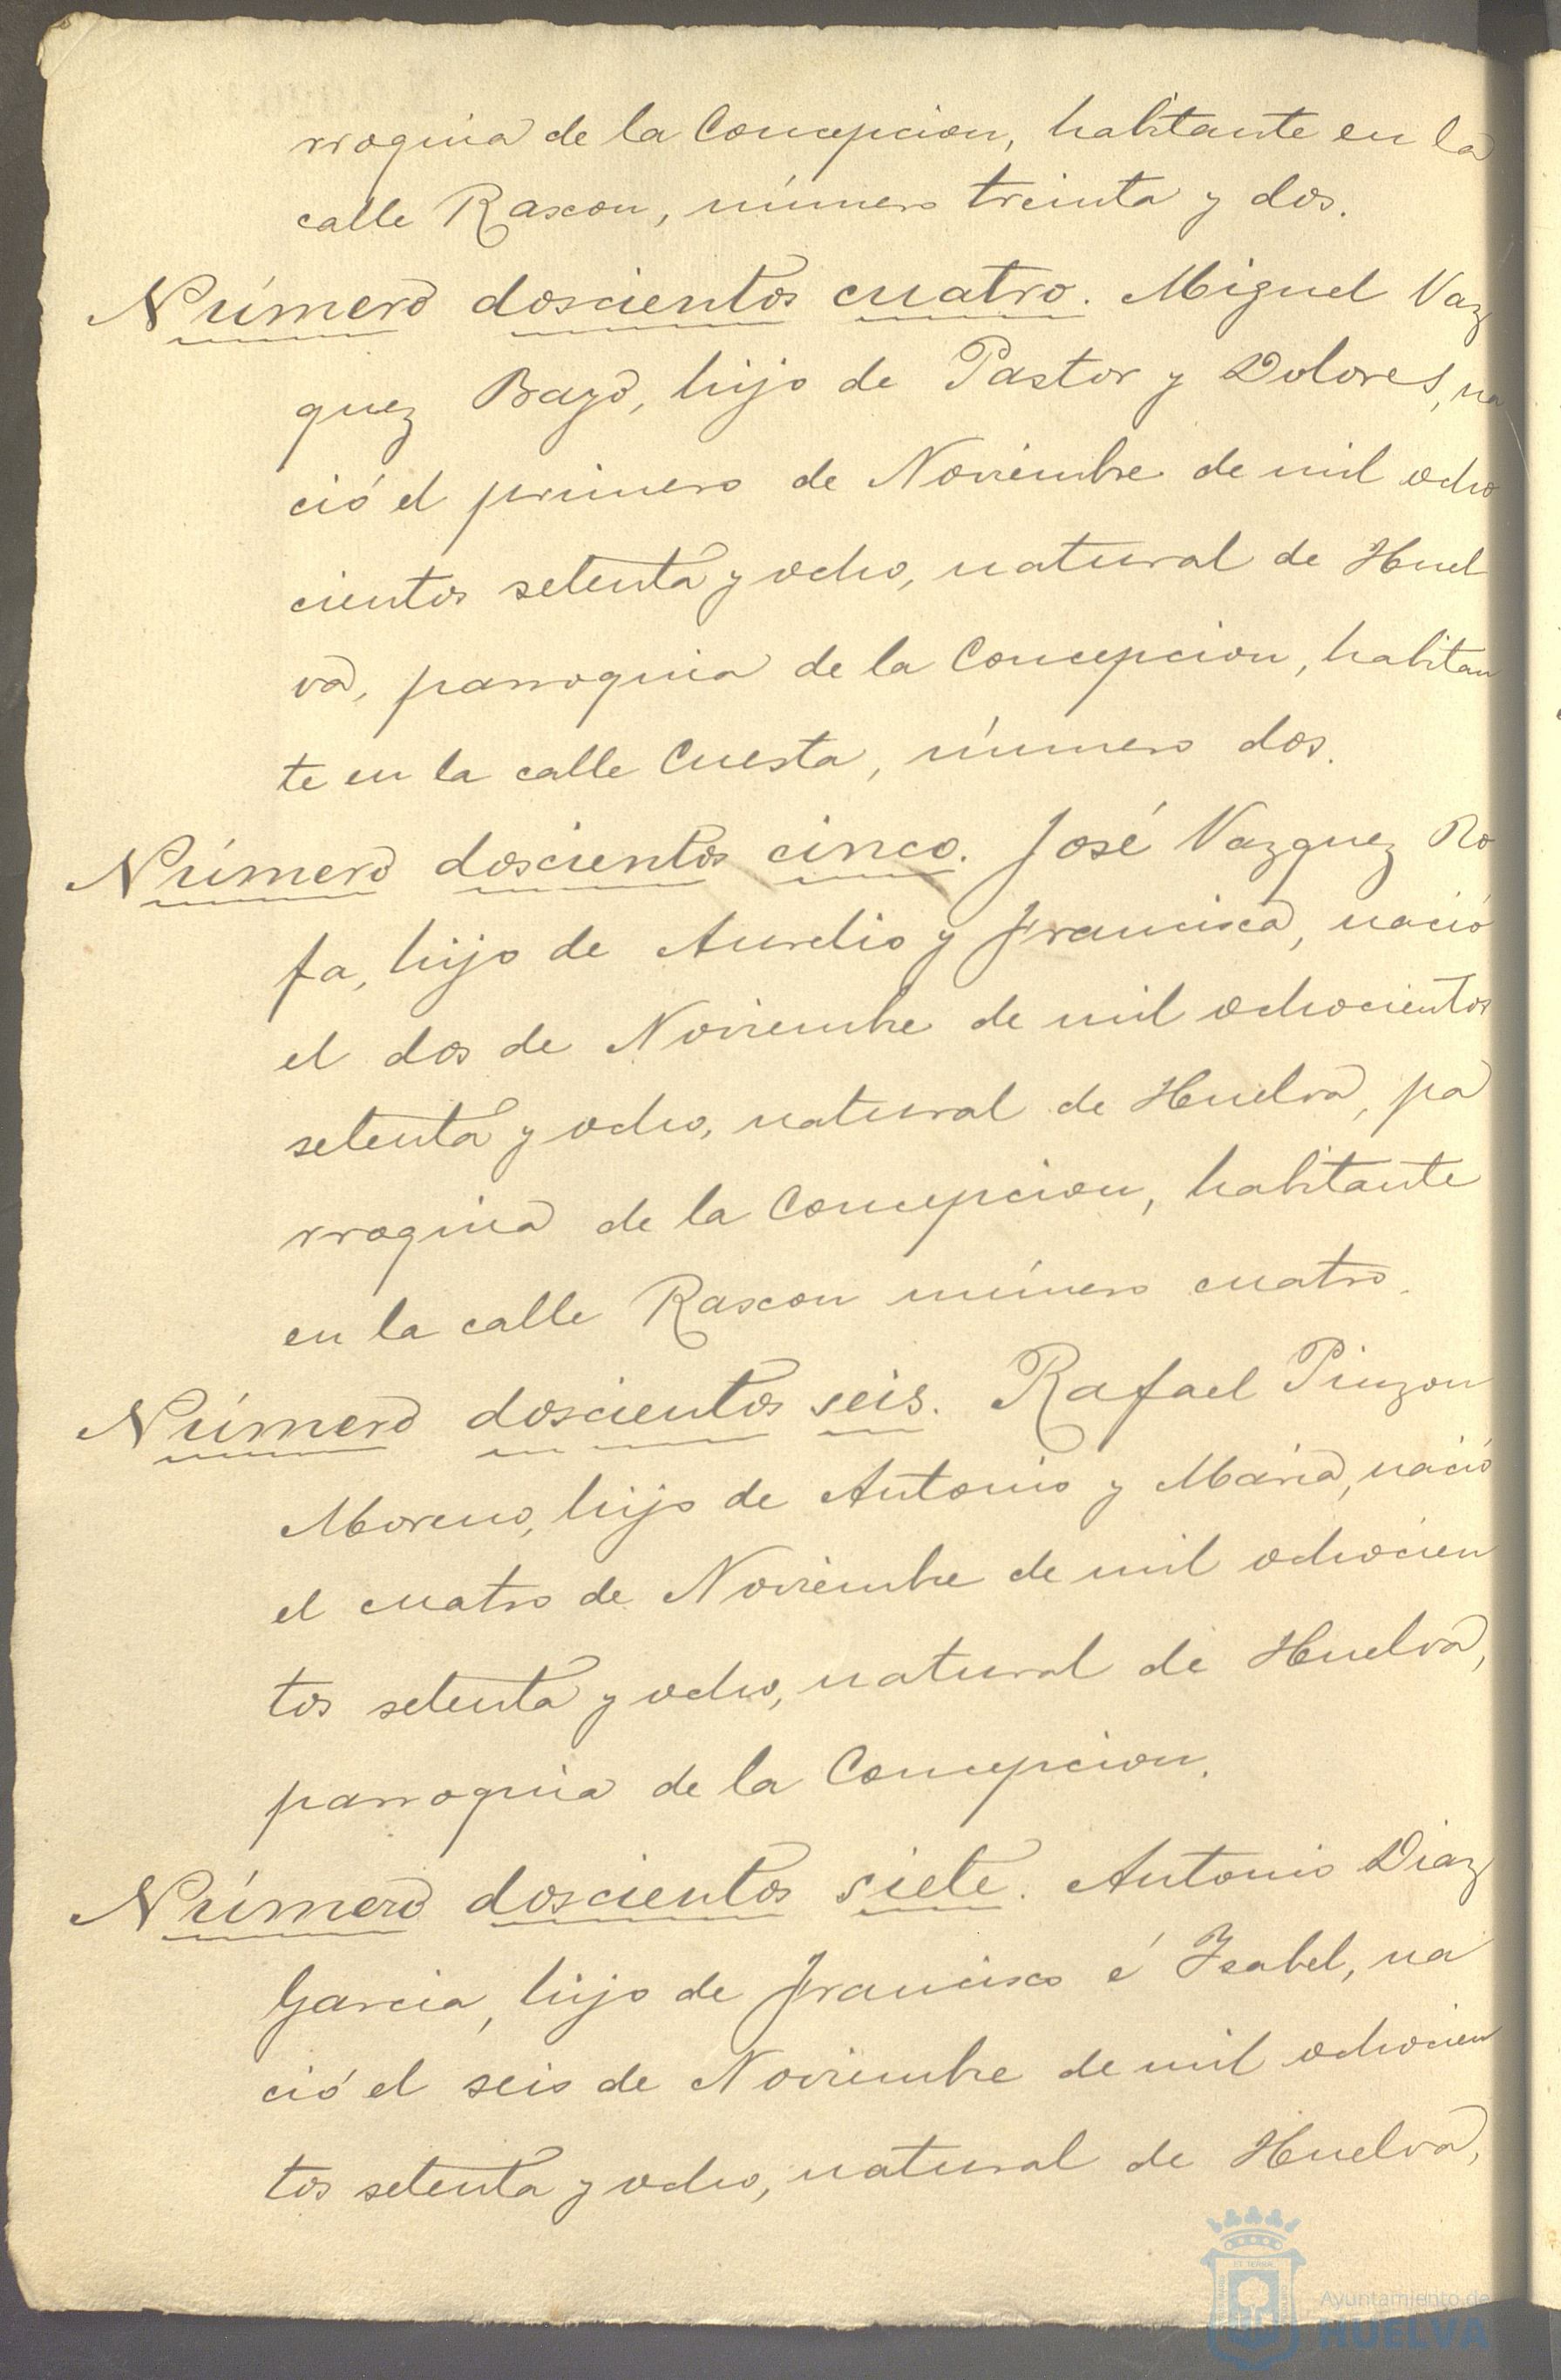 rroquia de la Concepcion, habitante en la
calle Rascon, número treinta y dos.
Número doscientos cuatro. Miguel Vaz
quez Bayo, hijo de Pastor y Dolores, na
ció el primero de Noviembre de mil ocho
cientos setenta y ocho, natural de Huel
va, parroquia de la Concepcion, habitan
te en la calle Cuesta, número dos.
Número doscientos cinco. José Vazquez Ro
fa, hijo de Aurelio y Francisca, nació
el dos de Noviembre de mil ochocientos
setenta y ocho, natural de Huelva, pa
rroquia de la Concepcion, habitante
en la calle Rascon número cuatro.
Número doscientos seis. Rafael Pinzon
Moreno, hijo de Antonio y Maria, nació
el cuatro de Noviembre de mil ochocien
tos setenta y ocho, natural de Huelva,
parroquia de la Concepcion.
Número doscientos siete. Antonio Diaz
Garcia, hijo de Francisco é Ysabel, na
ció el seis de Noviembre de mil ochocien
tos setenta y ocho, natural de Huelva,
Ayuntamiento de
HUELVA